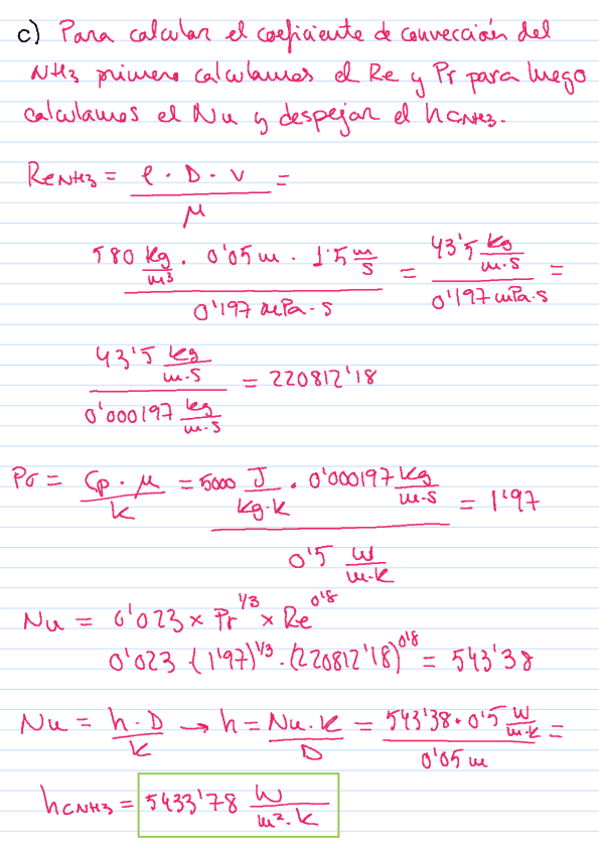 c) Para calcular el coeficiente de convección del
NH3 primero calculamos el Re y Pr para luego
calculamos el Nu y despejar el hCNH3.
ReNH3 = ρ · D · v / μ =
580 kg/m³ · 0'05 m · 1'5 m/s / 0'197 mPa·s = 43'5 kg/m·s / 0'197 mPa·s =
43'5 kg/m·s / 0'000197 kg/m·s = 220812'18
Pr = Cp · μ / k = 5000 J/kg·k · 0'000197 kg/m·s / 0'5 W/m·k = 1'97
Nu = 0'023 × Pr^1/3 × Re^0'8
0'023 · (1'97)^1/3 · (220812'18)^0'8 = 543'38
Nu = h · D / k → h = Nu · k / D = 543'38 · 0'5 W/m·k / 0'05 m =
hCNH3 = 5433'78 W/m²·k